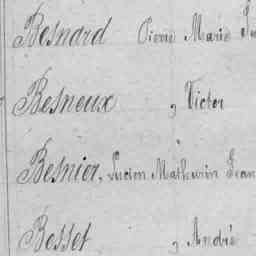 Besnard Pierre Marie
Besneux , Victor
Besnier, Lucien Mathurin Jean
Besset , André